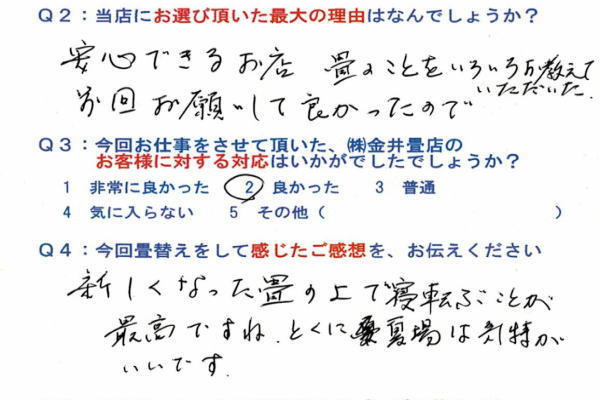 Q2：当店にお選び頂いた最大の理由はなんでしょうか？
安心できるお店 畳のことをいろいろ教えて
いただいた.
前回お願いして良かったので
Q3：今回お仕事をさせて頂いた、㈱金井畳店の
お客様に対する対応はいかがでしたでしょうか？
1 非常に良かった 2 良かった 3 普通
4 気に入らない 5 その他（ ）
Q4：今回畳替えをして感じたご感想を、お伝えください
新しくなった畳の上で寝転ぶことが
最高ですね.とくに夏場は気持が
いいです.